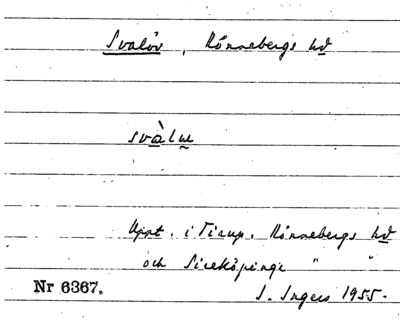 Svalöv, Rönnebergs hd
svàlɯ
Uppt. i Tirup. Rönnebergs hd
och Sireköpinge " "
Nr 6367. I. Ingers 1955.